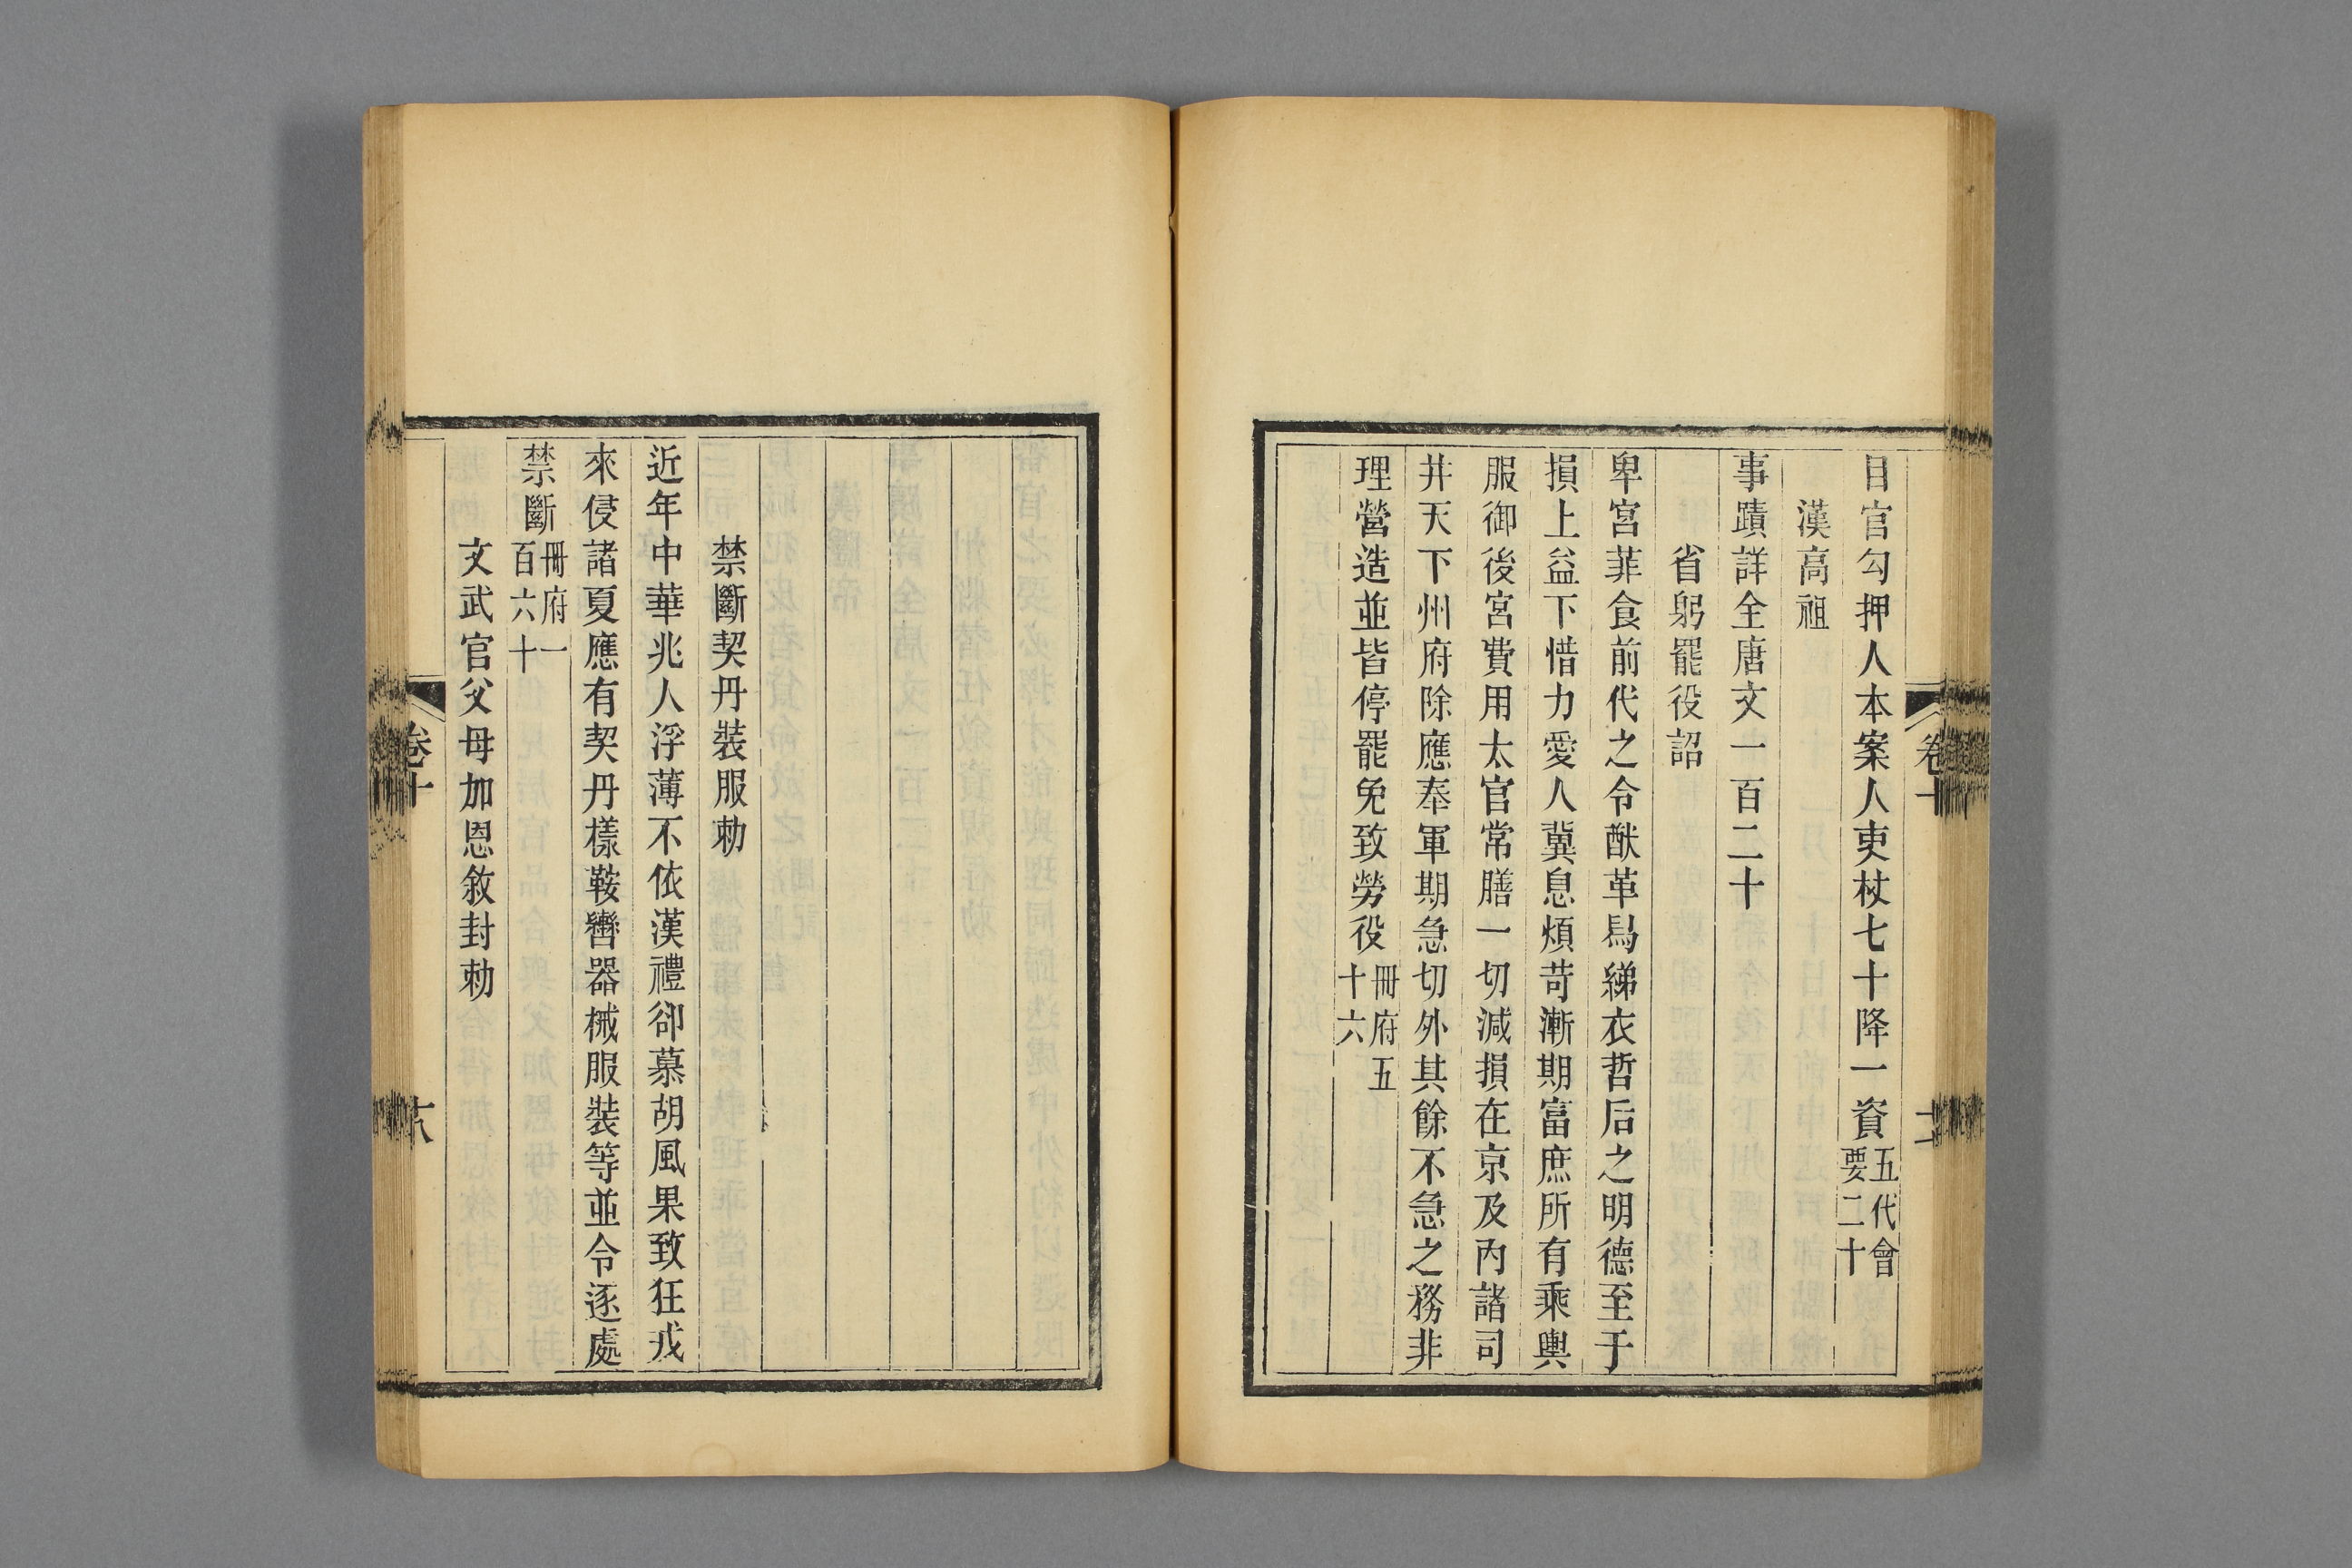 目官勾押人本案人吏杖七十降一資五代會要二十
漢高祖
事蹟詳全唐文一百二十
省躬罷役詔
卑宮菲食前代之令猷革舄綈衣哲后之明德至于
損上益下惜力愛人冀息煩苛漸期富庶所有乘輿
服御後宮費用太官常膳一切減損在京及內諸司
井天下州府除應奉軍期急切外其餘不急之務非
理營造並皆停罷免致勞役冊府五十六
禁斷契丹裝服勅
近年中華兆人浮薄不依漢禮卻慕胡風果致狂戎
來侵諸夏應有契丹樣鞍轡器械服裝等並令逐處
禁斷冊府一百六十
文武官父母加恩敘封勅
卷十